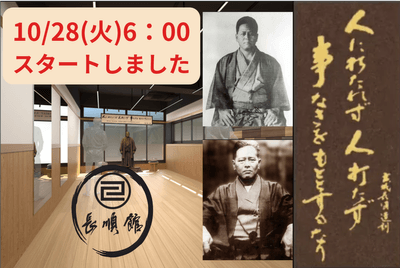 10/28(火)6：00
スタートしました
長順館
人に打たれず
人打たず
事なきを
もととするなり